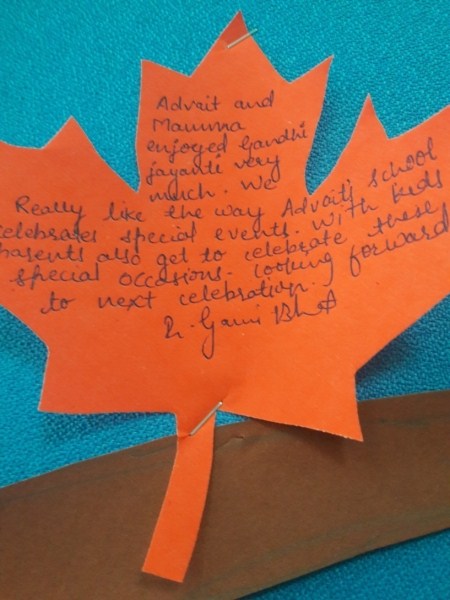 Advait and
Mamma
enjoyed Gandhi
jayanti very
much. We
Really like the way Advait's School
celebrates special events. With kids
parents also get to celebrate these
special occasions. Looking forward
to next celebration.